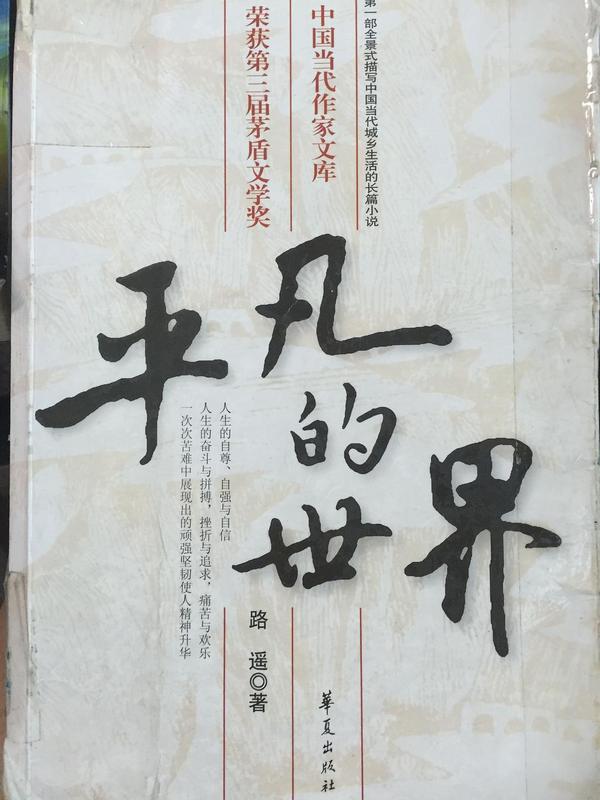 第一部全景式描写中国当代城乡生活的长篇小说
中国当代作家文库
荣获第三届茅盾文学奖
平凡的世界
人生的自尊、自强与自信
人生的奋斗与拼搏，挫折与追求，痛苦与欢乐
一次次苦难中展现出的顽强坚韧使人精神升华
路 遥◎著
華夏出版社